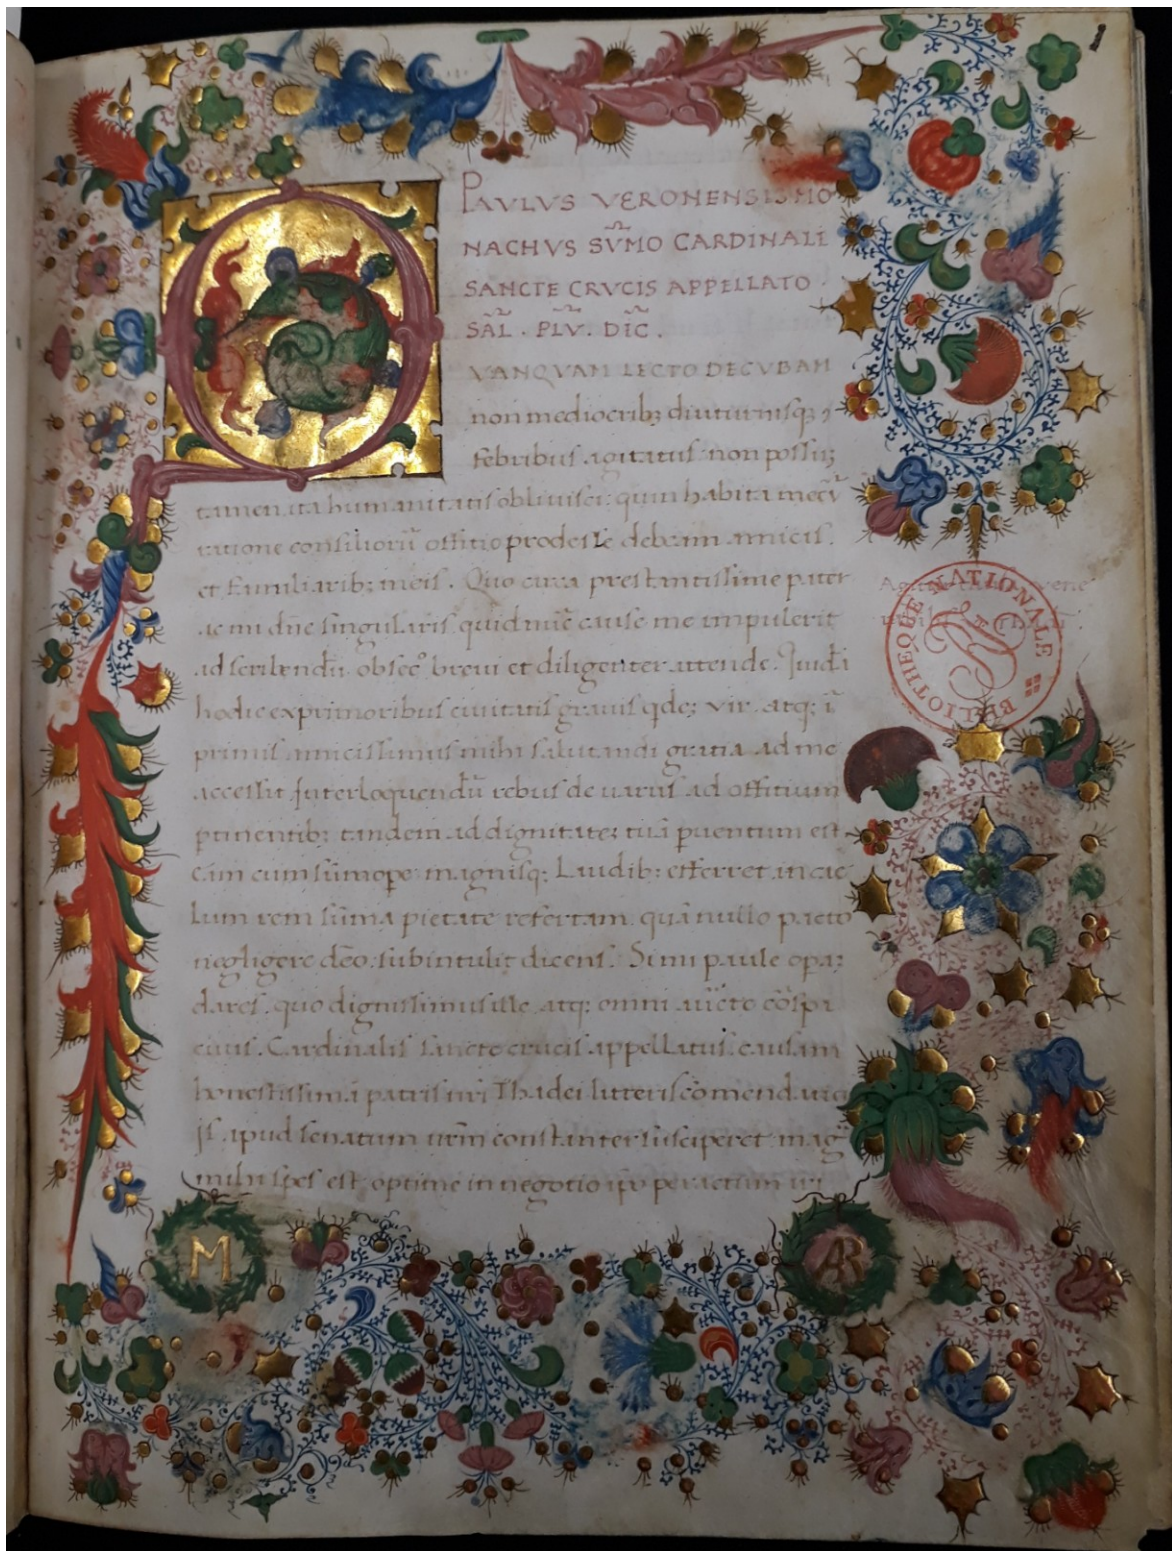 PAULUS VERONENSIS MO
NACHVS SVMO CARDINALI
SANCTE CRVCIS APPELLATO
SAL . PLV. DIC .
VANQVAM LECTO DECVBAN
non mediocrib; diuturnisq;
febribus agitatus non possu;
tamen ita humanitatis obliuisci: quin habita mecū
ratione consiliorū offitio prodesse debeam amicis.
et familiarib; meis. Quo circa prestantissime pater
ac mi dn̄e singularis quid nūc cause me impulerit
ad scribendū. obsecᵒ breui et diligenter attende.
hodie ex primoribus ciuitatis grauis qdē; vir. atq; ī
primis amicissimus mihi salutandi gratia ad me
accessit Interloquendū rebus de uariis ad offitium
ptinentib; tandem ad dignitatē; tuā puentum est
Eām cum sūmope magnisq; Laudib; efferret in cae
lum rem sūma pietate refertam. quā nullo pacto
negligere dēo. subintulit dicens. Si mi paule opaz
dares. quo dignissimus ille atq; omni aucto
Cardinalis sancte crucis appellatus. causam
honestissimā patris mī Thadei litteris cōmendatio
is apud senatum urm constanter susciperet mag
mihi spes est. optime in negotio ipo peractum iri
M
AR
BIBLIOTHEQUE NATIONALE